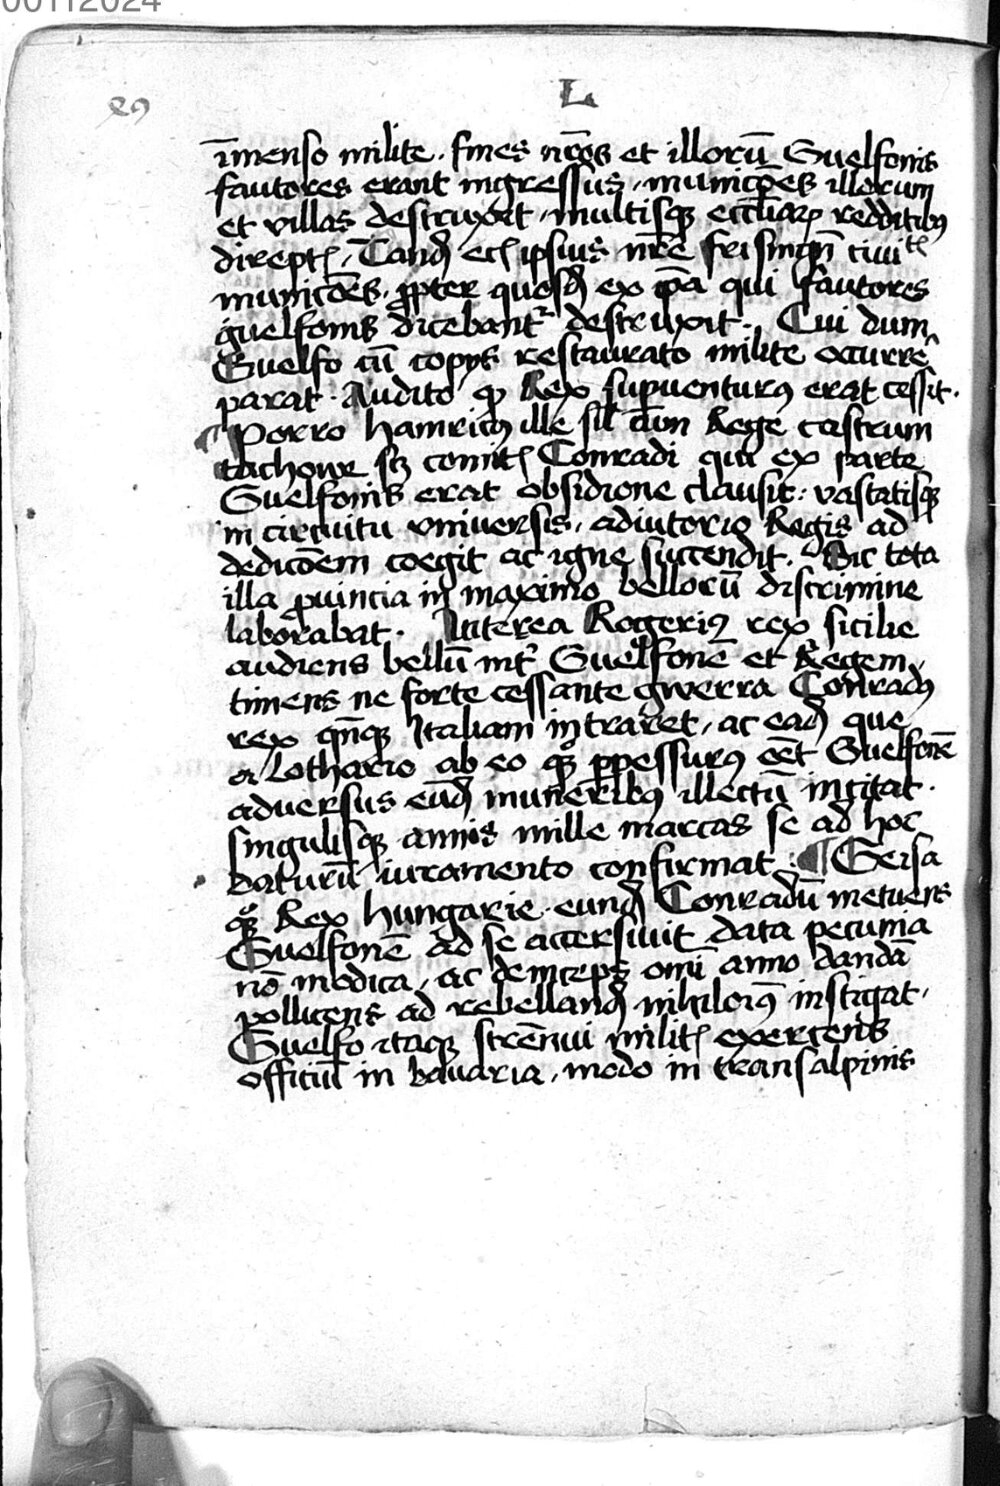 00112024
L
89
īmenso milite. fines nr̄os et illorū Guelfonis
fautores erant ingressus, municōes illorum
et villas destruxit, multisqꝫ eccliaꝝ redditibꝯ
direptꝭ, Tandē ipsius nr̄e frisingn̄
municōes, ꝓpter quosdā ex ea qui fautores
guelfonis dicebantᵉ destruxit. Cui dum
Guelfo cū copijs restaurato milite occurrē
parat. Audito ꝙ Rex supuenturꝯ erat cessit.
Porro hainricꝯ ille sil̄ cum Rege castrum
tachowe sꝫ comitꝭ Conradi qui ex parte
Guelfonis erat obsidione clausit: vastatisqꝫ
in circuitu vniuersis, adiutorio Regis ad
dedicōem coegit ac igne succendit. Sic tota
illa ꝓuincia in maximo bellorū discrimine
laborabat. Interea Rogeriꝯ rex sicilie
audiens bellū intᵉ Guelfonē et Regem,
timens ne forte cessante gwerra Conradꝯ
rex qn̄qꝫ Italiam intraret, ac eadē que
a Lothario ab eo ꝑpessurꝯ eēt Guelfonē
aduersus eūdē muneribꝯ illectū incitat.
singulisqꝫ annis mille marcas se ad hoc
daturū iuramento confirmat. ¶ Geisa
Rex hungarie eundē Conradū metuens
Guelfonē ad se accersiuit data pecunia
nō modica, ac deinceps omi anno dandā
pollicens ad rebellandū nihilominꝯ instigat.
Guelfo itaqꝫ strēnui militꝭ exercens
officiū in bauaria, modo in transalpinis